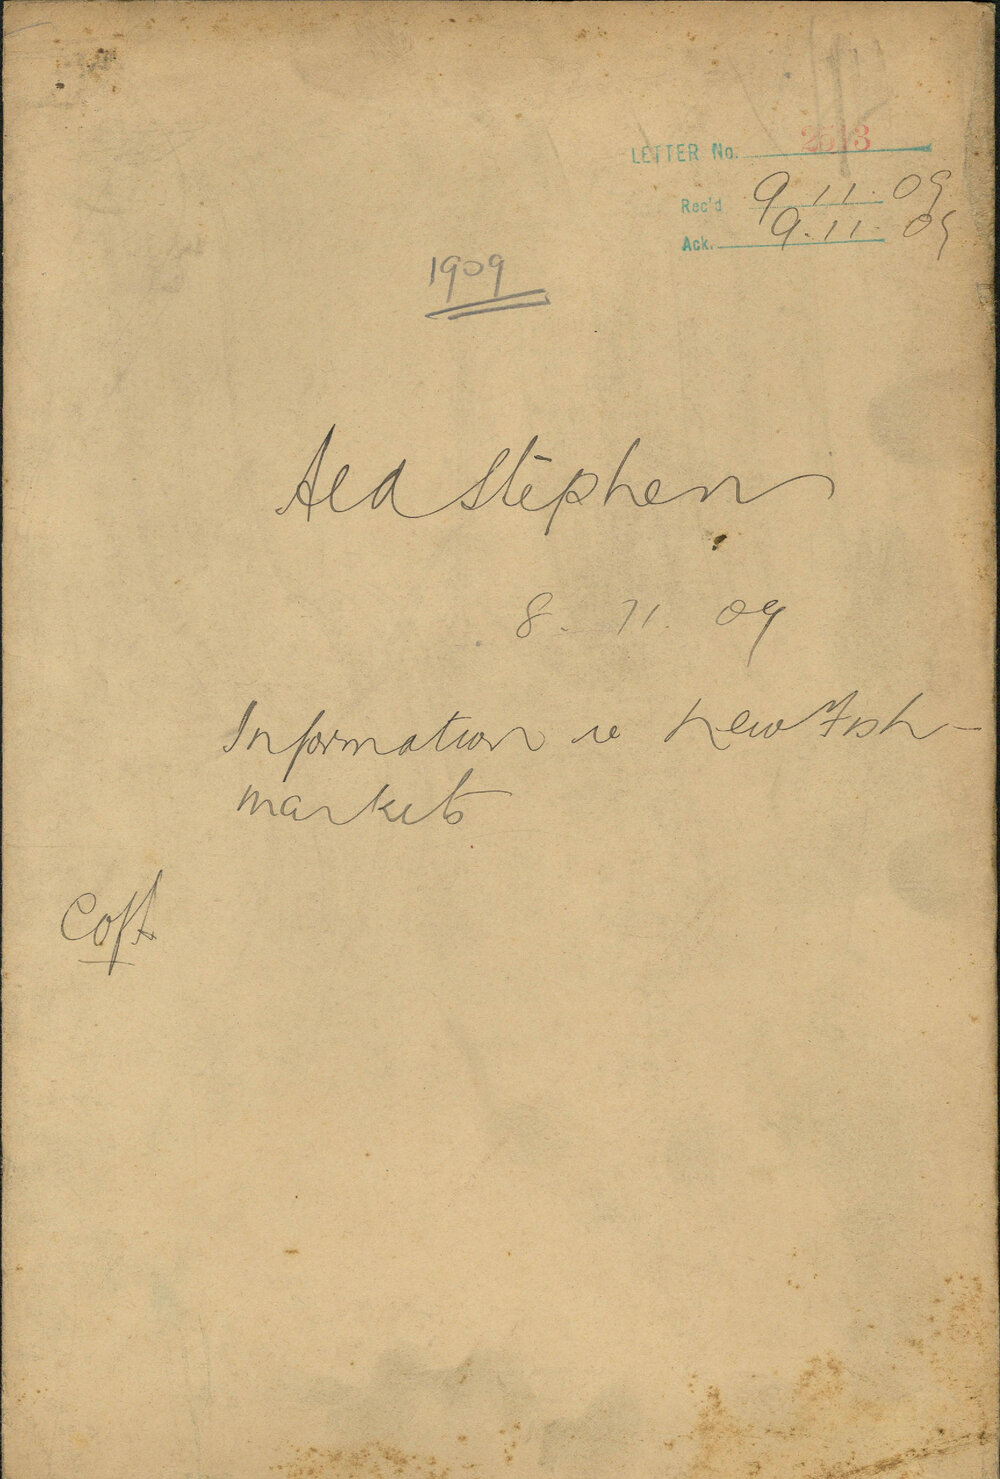 LETTER No. 2513
Rec'd 9.11.09
Ack. 9.11.09
1909
Ald Stephen
8.11.09
Information re new Fish-
markets